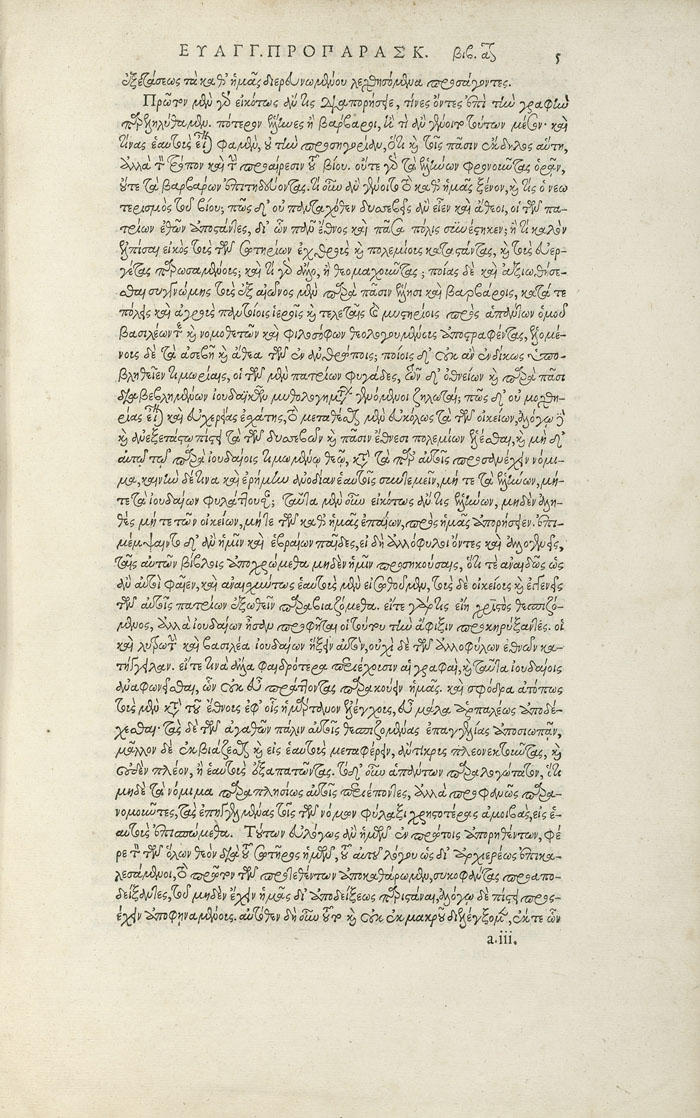 ΕΥΑΓΓ. ΠΡΟΠΑΡΑΣΚ. βιβ. α 5
ἐξετάσεως τὰ καθ' ἡμᾶς διερευνωμένου λεχθησόμενα προσάγοντες.
Πρῶτον μὲν γὰρ εἰκότως ἄν τις διαπορήσειε, τίνες ὄντες ἐπὶ τὴν γραφὴν
παρεληλύθαμεν. πότερον ἕλληνες ἢ βάρβαροι, ἢ τί ἂν γένοιτο τούτων μέσον· καὶ
τίνας ἑαυτοὺς εἶναι φαμὲν, οὐ τὴν προσηγορίαν, ὅτι καὶ τοῖς πᾶσιν ἔκδηλος αὕτη,
ἀλλὰ τὸν τρόπον καὶ τὴν προαίρεσιν τοῦ βίου. οὔτε γὰρ τὰ ἑλλήνων φρονοῦντας ὁρᾶν,
οὔτε τὰ βαρβάρων ἐπιτηδεύοντας. τί οὖν ἂν γένοιτο τὸ καθ' ἡμᾶς ξένον, καὶ τίς ὁ νεω
τερισμὸς τοῦ βίου; πῶς δ' οὐ πανταχόθεν δυσσεβεῖς ἂν εἶεν καὶ ἄθεοι, οἱ τῶν πα-
τρίων ἐθῶν ἀποστάντες, δι' ὧν πᾶν ἔθνος καὶ πᾶσα πόλις συνέστηκεν; ἢ τί καλὸν
ἐλπίσαι εἰκὸς τοὺς τῶν σωτηρίων ἐχθροὺς καὶ πολεμίους καταστάντας, καὶ τοὺς εὐερ-
γέτας παρωσαμένους; καὶ τί γὰρ ἄλλο, ἢ θεομαχοῦντας; ποίας δὲ καὶ ἀξιωθήσε-
σθαι συγγνώμης τοὺς ἐξ αἰῶνος μὲν παρὰ πᾶσιν ἕλλησι καὶ βαρβάροις, κατά τε
πόλεις καὶ ἀγροὺς παντοίοις ἱεροῖς καὶ τελεταῖς καὶ μυστηρίοις πρὸς ἁπάντων ὁμοῦ
βασιλέων τε καὶ νομοθετῶν καὶ φιλοσόφων θεολογουμένους ἀποστραφέντας, ἑλομέ-
νους δὲ τὰ ἀσεβῆ καὶ ἄθεα τῶν ἐν ἀνθρώποις; ποίοις δ' οὐκ ἂν ἐνδίκως ὑπο-
βληθεῖεν τιμωρίαις, οἱ τῶν μὲν πατρίων φυγάδες, τῶν δ' ὀθνείων καὶ παρὰ πᾶσι
διαβεβλημένων ἰουδαϊκῶν μυθολογημάτων γενόμενοι ζηλωταί; πῶς δ' οὐ μοχθη-
ρίας εἶναι καὶ εὐχερείας ἐσχάτης, τὸ μεταθέσθαι μὲν εὐκόλως τὰ τῶν οἰκείων, ἀλόγῳ δὲ
καὶ ἀνεξετάστῳ πίστει τὰ τῶν δυσσεβῶν καὶ πᾶσιν ἔθνεσι πολεμίων ἑλέσθαι, καὶ μὴ δ'
αὐτῷ τῷ παρὰ ἰουδαίοις τιμωμένῳ θεῷ, κατὰ τὰ παρ' αὐτοῖς προσανέχειν νόμι-
μα, καινὴν δέ τινα καὶ ἐρήμην ἀνοδίαν ἑαυτοῖς συντεμεῖν, μήτε τὰ ἑλλήνων, μή-
τε τὰ ἰουδαίων φυλάττουσαν; ταῦτα μὲν οὖν εἰκότως ἄν τις ἑλλήνων, μηδὲν ἀλη-
θὲς μήτε τῶν οἰκείων, μήτε τῶν καθ' ἡμᾶς ἐπαΐων, πρὸς ἡμᾶς ἀπορήσειεν. ἐπι-
μέμψαιντο δ' ἂν ἡμῖν καὶ ἑβραίων παῖδες, εἰ δὴ ἀλλόφυλοι ὄντες καὶ ἀλλογενεῖς,
ταῖς αὐτῶν βίβλοις ἀποχρώμεθα μηδὲν ἡμῖν προσηκούσαις, ὅτι τε ἀναιδῶς ὡς
ἂν αὐτοὶ φαῖεν, καὶ ἀναισχύντως ἑαυτοὺς μὲν εἰσωθοῦμεν, τοὺς δὲ οἰκείους καὶ ἐγγενεῖς
τῶν αὐτοῖς πατρίων ἐξωθεῖν παραβιαζόμεθα. εἴτε γάρ τις εἴη χριστὸς θεσπιζό-
μενος, ἀλλὰ ἰουδαίων ἦσαν προφῆται οἱ τούτου τὴν ἄφιξιν προκηρύξαντες. οἳ
καὶ λυτρωτὴν καὶ βασιλέα ἰουδαίων ἥξειν αὐτὸν, οὐχὶ δὲ τῶν ἀλλοφύλων ἐθνῶν κα-
τήγγειλαν. εἴτε τινὰ ἄλλα φαιδρότερα περιέχουσιν αἱ γραφαὶ, καὶ ταῦτα ἰουδαίοις
ἀναφωνεῖσθαι, ὧν οὐκ εὖ πράττοντας παρακούειν ἡμᾶς. καὶ σφόδρα ἀτόπως
τοὺς μὲν κατὰ τοῦ ἔθνους ἐφ' οἷς ἡμάρτανον ἐλέγχους, εὖ μάλα ἀσπαλέως ἀποδέ-
χεσθαι· τὰς δὲ τῶν ἀγαθῶν πάλιν αὐτοῖς θεσπιζομένας ἐπαγγελίας ἀποσιωπᾶν,
μᾶλλον δὲ ἐκβιάζεσθαι καὶ εἰς ἑαυτοὺς μεταφέρειν, ἄντικρυς πλεονεκτοῦντας, καὶ
οὐδὲν πλέον, ἢ ἑαυτοὺς ἐξαπατῶντας. τὸ δ' οὖν ἁπάντων παραλογώτατον, ὅτι
μηδὲ τὰ νόμιμα παραπλησίως αὐτοῖς περιέποντες, ἀλλὰ προφανῶς παρα-
νομοῦντες, τὰς ἐπηγγελμένας τοῖς τῶν νόμων φύλαξι χρηστοτέρας ἀμοιβὰς, εἰς ἑ-
αυτοὺς ἐπισπώμεθα. Τούτων εὐλόγως ἂν ἡμῖν ἐν πρώτοις ἀπορηθέντων, φέ
ρε τὸν τῶν ὅλων θεὸν διὰ τοῦ σωτῆρος ἡμῶν, τοῦ αὐτοῦ λόγου ὡς δι' ἀρχιερέως ἐπικα-
λεσάμενοι, τὸ πρῶτον τῶν προτεθέντων ἀποκαθάρωμεν, συκοφάντας προαπο-
δείξαντες, τοὺς μηδὲν ἔχειν ἡμᾶς δι' ἀποδείξεως παριστάναι, ἀλόγῳ δὲ πίστει προσ-
έχειν ἀποφηναμένους. αὐτόθεν δὴ οὖν τοῦτο καὶ οὐκ ἐκ μακροῦ διελέγξομεν, ἔκ τε ὧν
a.iii.